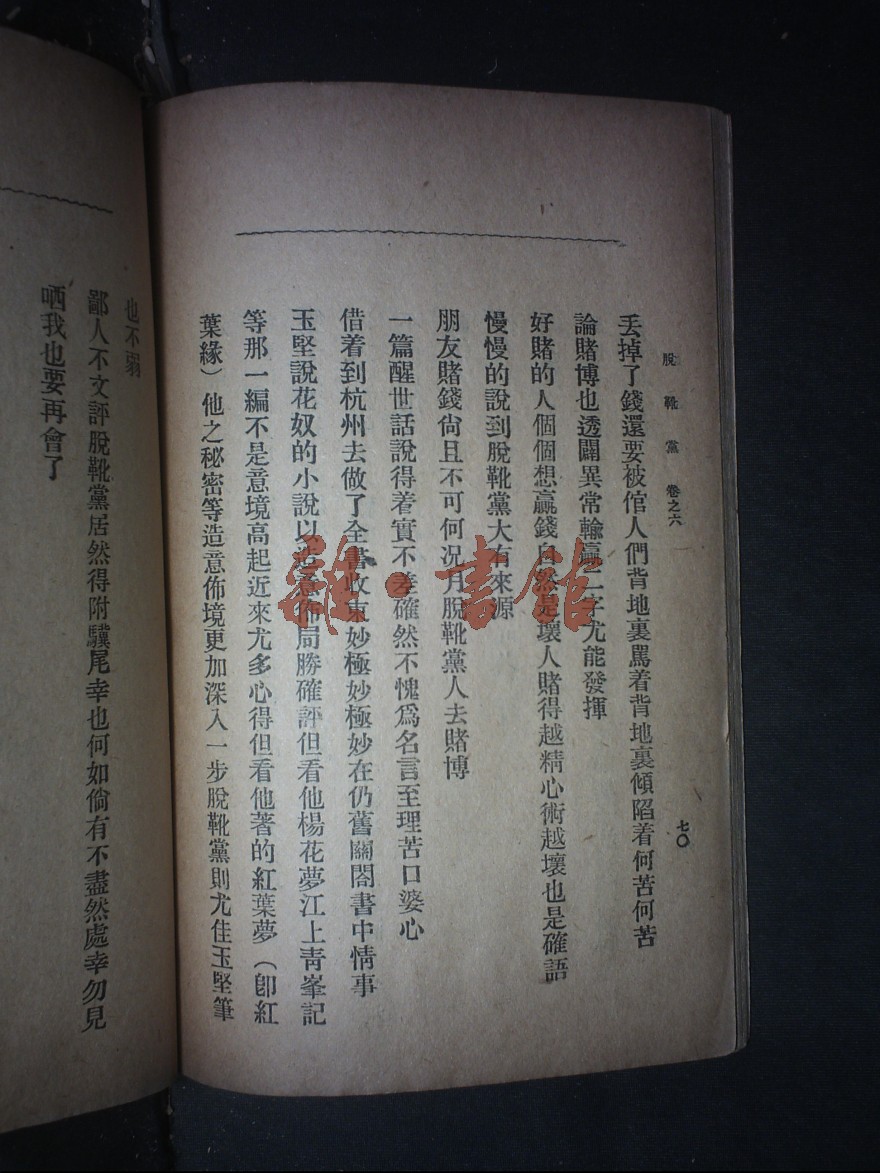 脫靴黨　卷之六
七〇
丟掉了錢還要被倌人們背地裏罵着背地裏傾陷着何苦何苦
論賭博也透闢異常輸贏二字尤能發揮
好賭的人個個想贏錢自然是壞人賭得越精心術越壞也是確語
慢慢的說到脫靴黨大有來源
朋友賭錢尙且不可何況月脫靴黨人去賭博
一篇醒世話說得着實不差確然不愧爲名言至理苦口婆心
借着到杭州去做了全書收束妙極妙極妙在仍舊關閤書中情事
玉堅說花奴的小說以造意佈局勝確評但看他楊花夢江上靑峯記
等那一編不是意境高起近來尤多心得但看他著的紅葉夢（卽紅
葉緣）他之秘密等造意佈境更加深入一步脫靴黨則尤佳玉堅筆
也不弱
鄙人不文評脫靴黨居然得附驥尾幸也何如倘有不盡然處幸勿見
哂我也要再會了
雜·書館